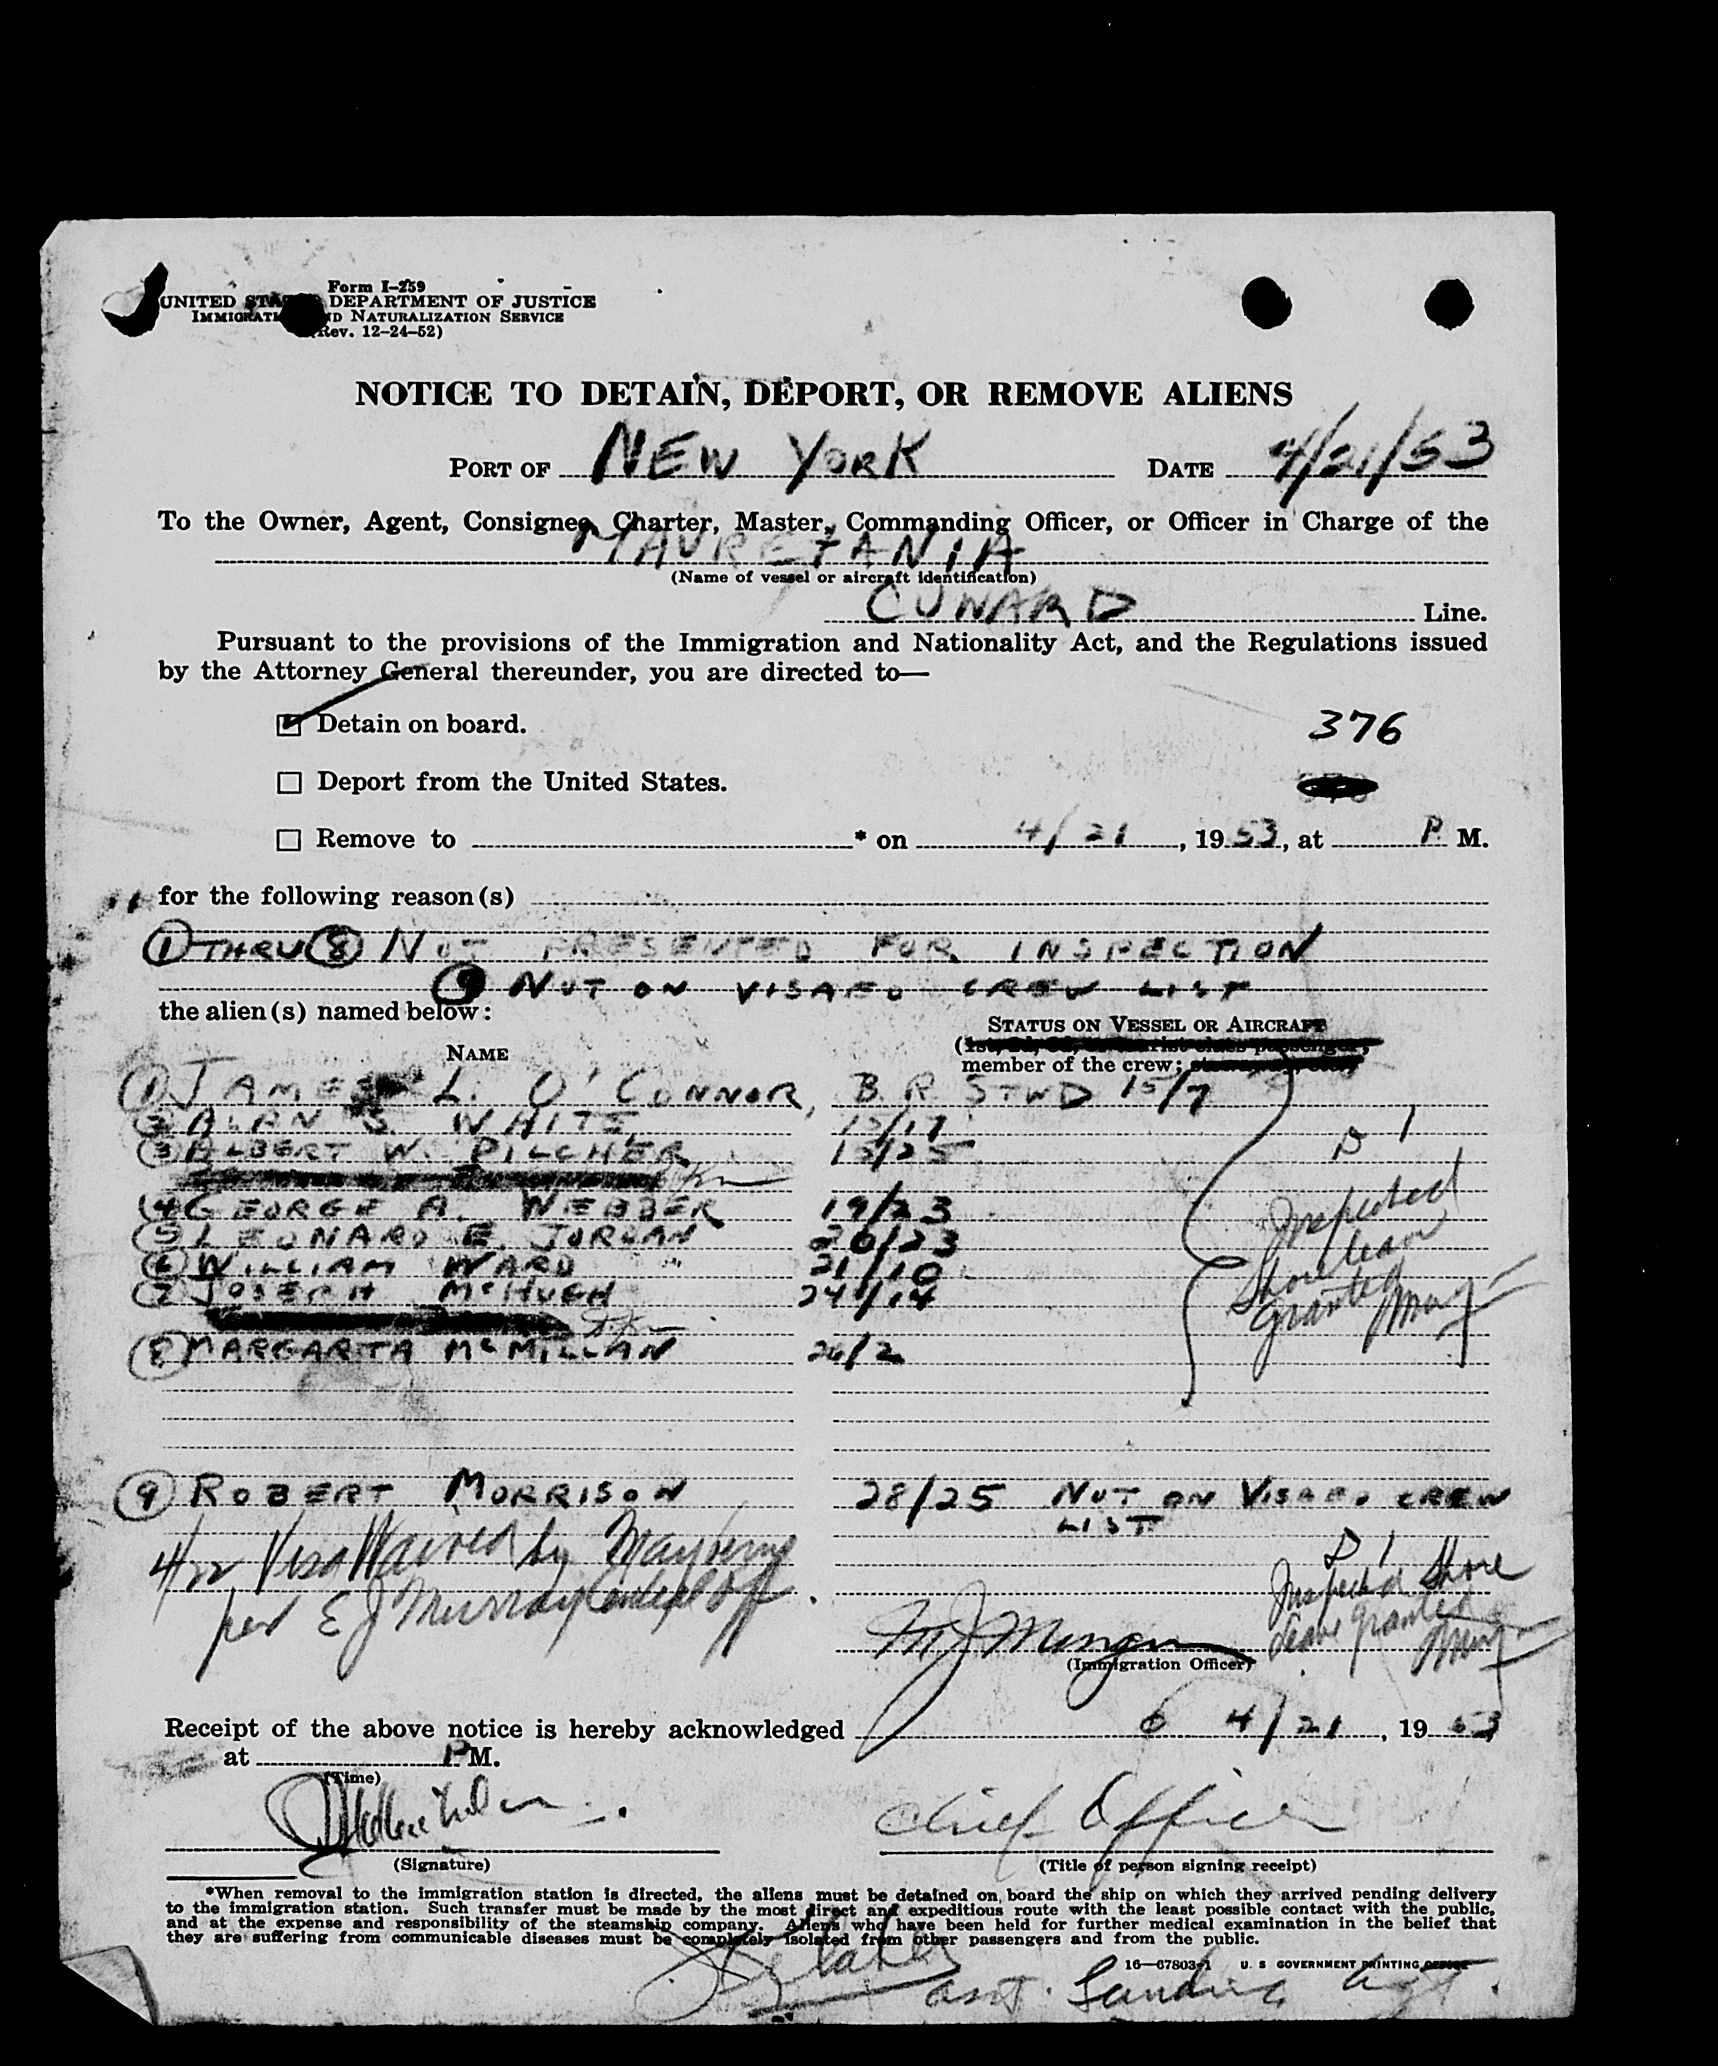 Form I-259
UNITED STATES DEPARTMENT OF JUSTICE
IMMIGRATION AND NATURALIZATION SERVICE
(Rev. 12-24-52)
NOTICE TO DETAIN, DEPORT, OR REMOVE ALIENS
PORT OF NEW YORK DATE 4/21/53
To the Owner, Agent, Consignee, Charter, Master, Commanding Officer, or Officer in Charge of the
MAURETANIA
(Name of vessel or aircraft identification)
CUNARD Line.
Pursuant to the provisions of the Immigration and Nationality Act, and the Regulations issued
by the Attorney General thereunder, you are directed to—
Detain on board. 376
Deport from the United States.
Remove to * on 4/21, 1953, at P. M.
for the following reason(s)
1 THRU 8 NOT PRESENTED FOR INSPECTION
9 NOT ON VISAED CREW LIST
the alien(s) named below:
STATUS ON VESSEL OR AIRCRAFT
NAME
member of the crew;
1 JAMES L. O'CONNOR, B.R. STWD 15/7
2 ALAN S. WHITE 15/17
3 ALBERT W. PILCHER 15/25
D 1
4 GEORGE A. WEBBER 19/23
5 LEONARD E. JORDAN 20/23
6 WILLIAM WARD 21/10
7 JOSEPH McHUGH 24/14
Inspected
Shore leave
granted
8 MARGARITA McMILLAN 26/2
9 ROBERT MORRISON 28/25 NOT ON VISAED CREW
LIST
4/22 Visa Waived by
per E J Murray
D 1
Inspected Shore
leave granted
(Immigration Officer)
Receipt of the above notice is hereby acknowledged 6 4/21, 1953
at P M.
(Time)
Chief Officer
(Signature) (Title of person signing receipt)
*When removal to the immigration station is directed, the aliens must be detained on board the ship on which they arrived pending delivery
to the immigration station. Such transfer must be made by the most direct and expeditious route with the least possible contact with the public,
and at the expense and responsibility of the steamship company. Aliens who have been held for further medical examination in the belief that
they are suffering from communicable diseases must be completely isolated from other passengers and from the public.
16—67803-1 U. S GOVERNMENT PRINTING OFFICE
asst. Landing Agt.